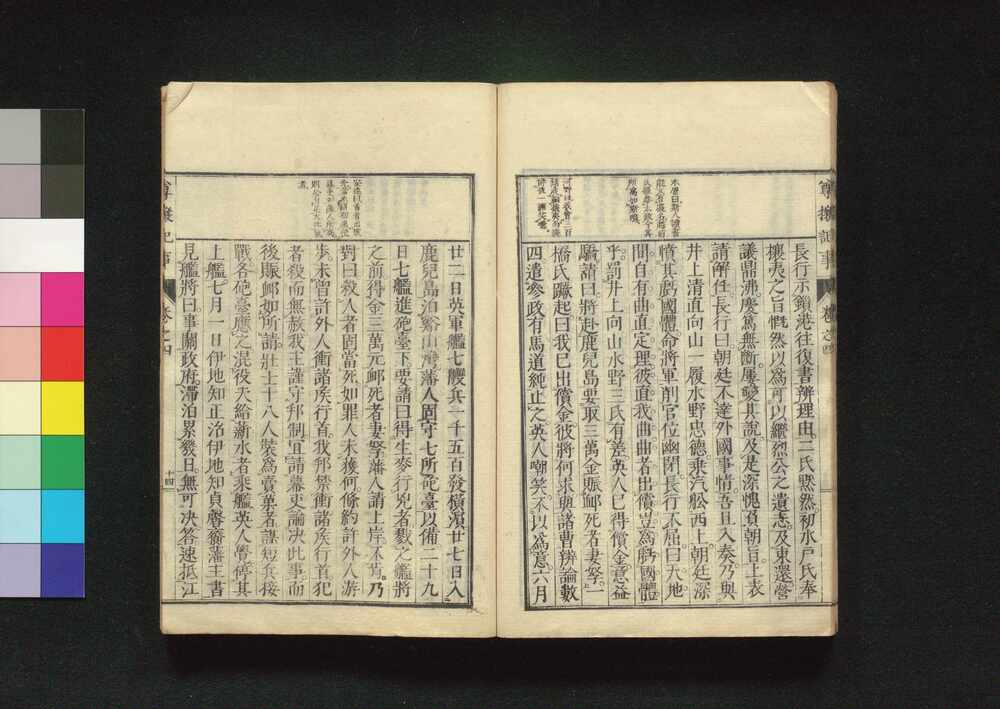 尊攘記事
卷之四
長行示鎖港往復書辨理由二氏黙然初水戸氏奉
攘夷之旨慨然以為可以繼烈公之遺志及東還營
議鼎沸慶篤無斷屢變其説及是深愧負朝旨上表
請解任長行曰朝廷不達外國事情吾且入奏乃與
井上清直向山一履水野忠德乘汽舩西上朝廷深
憤其虧國體命將軍削官位幽閉長行不屈曰天地
間自有曲直定理彼直我曲曲者出償豈為虧國體
乎罰井上向山水野三氏有差英人已得償金意益
驕請曰將赴鹿兒島要取三萬金賑邮死者妻孥一
橋氏蹶起曰我已出償金彼將何求與諸曹辨論數
四遣參政有馬道純止之英人嘲笑不以為意六月
廿二日英軍艦七艘兵一千五百發橫濱廿七日入
鹿兒島泊谿山灣藩人固守七所砲臺以備二十九
日七艦進砲臺下要請曰得生麥行兇者戮之艦將
之前得金三萬元邮死者妻孥藩人請上岸不肯乃
對曰殺人者固當死如罪人未獲何條約許外人游
步未曾許外人衝諸矦行首我邦禁衝諸矦行首犯
者殺而無赦我主謹守邦制宜請幕吏論决此事而
後賑邮如所請壯士十八人裝為賣菓者謀短兵接
戰各砲臺應之混役夫給薪水者乘艦英人覺停其
上艦七月一日伊地知正治伊地知貞馨齎藩主書
見艦將曰事關政府滯泊累數日無可决答速抵江
尊攘記事
卷之四
十四